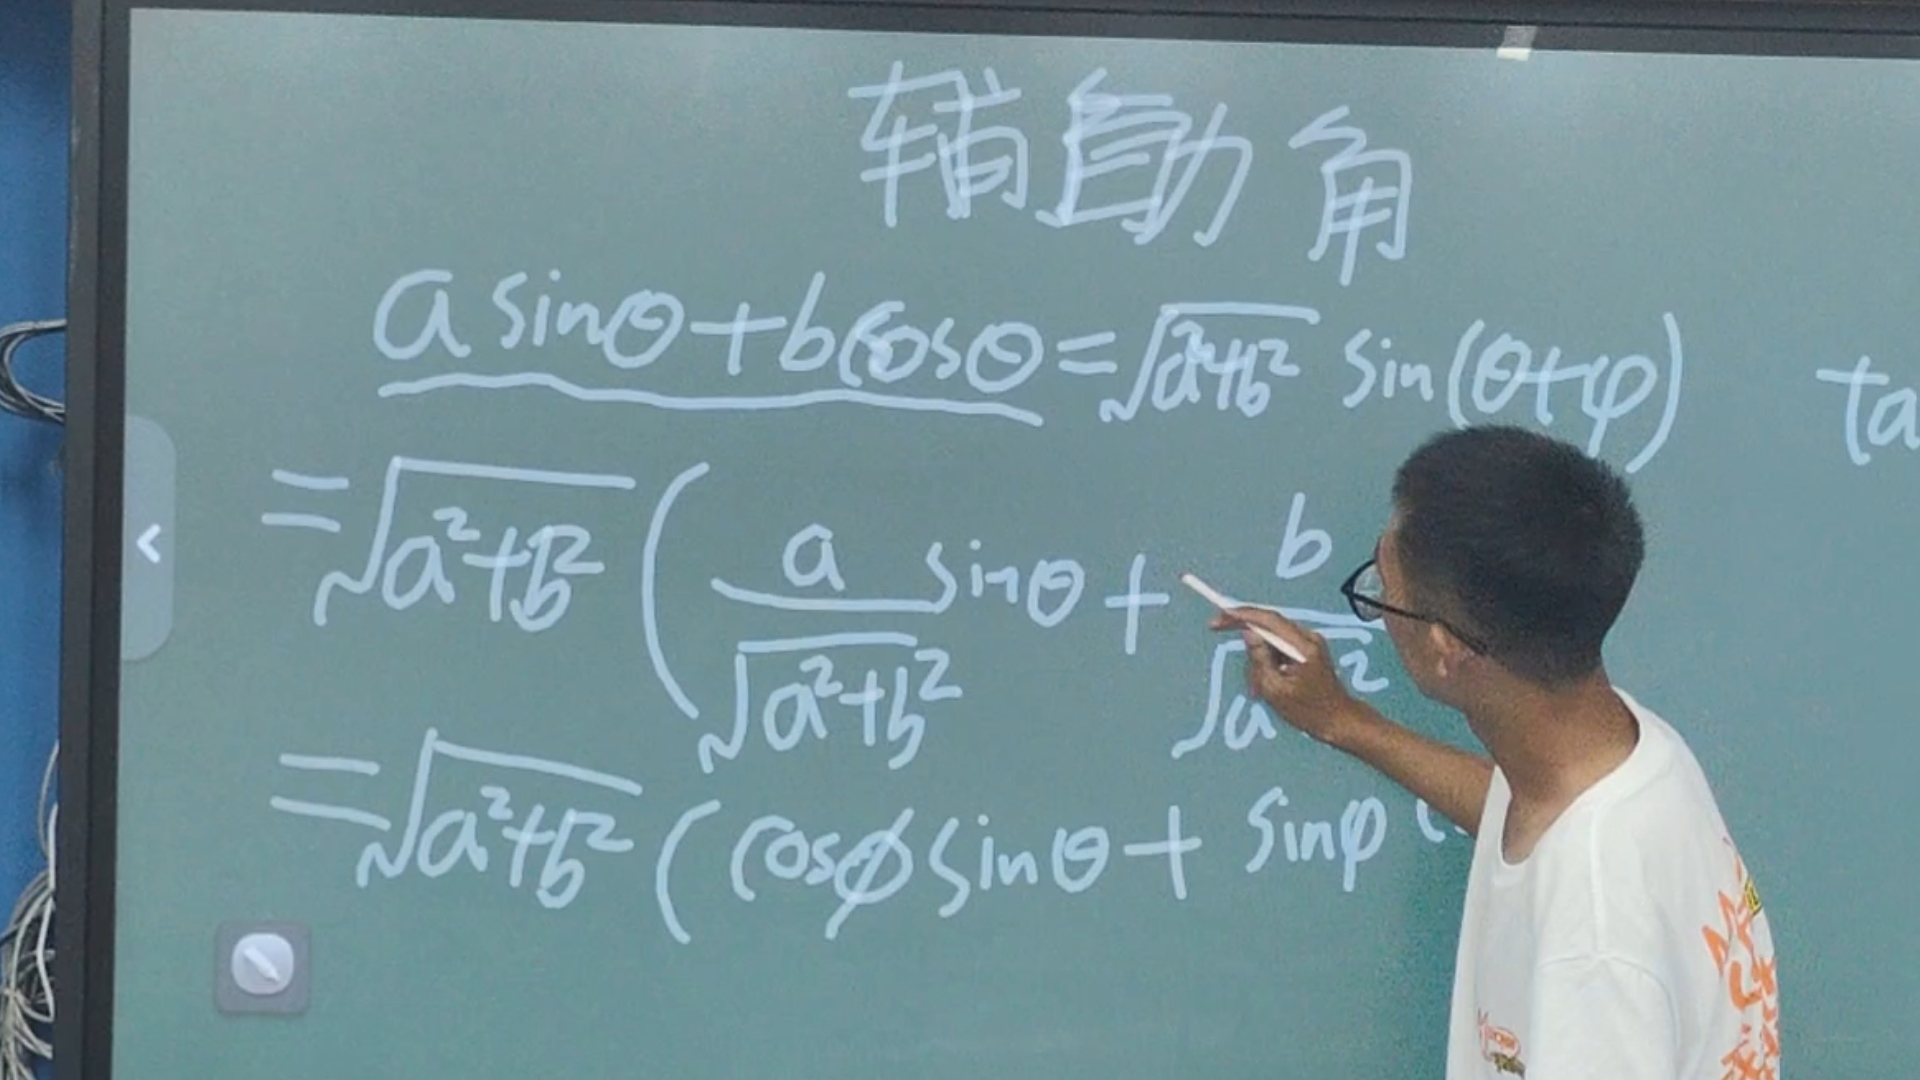 辅助角
asinθ+bcosθ=√a²+b² sin(θ+φ) ta
=√a²+b² (a/√a²+b² sinθ+b/√a ²
=√a²+b² (cosφsinθ+sinφ